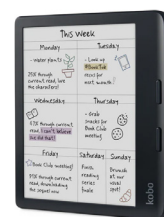 This Week
Monday
- Water plants
25% through
current read, love
the characters!
Tuesday
- Look up
#BookTok
ideas for
next month!
Wednesday
50% through current
read, I can't believe
she did that!
Thursday
- Grab
snacks for
Book Club
meeting
Friday
Book Club meeting!
75% through
current read,
downloading
the sequel now
Saturday
Finish
reading
series
finale
Sunday
Brunch
at our
usual
spot!
kobo